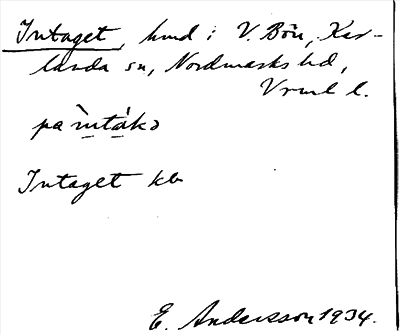 Intaget, hmd i V. Bön, Kar-
landa sn, Nordmarks hd,
Vrml l.
pa ìntákə
Intaget kb
E. Andersson 1934.